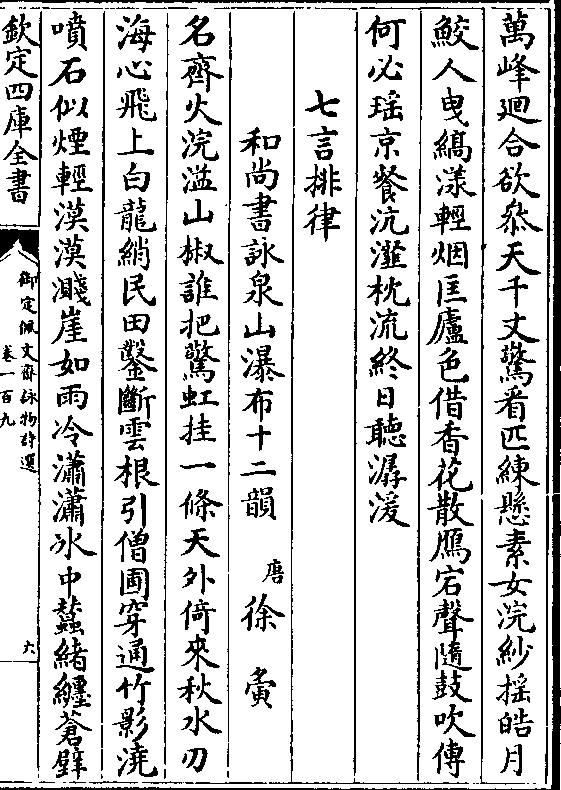 萬峰迴合欲叅天千丈驚看匹練懸素女浣紗摇皓月
鮫人曳縞漾輕烟匡廬色借香花散鴈宕聲隨鼓吹傳
何必瑶京餐沆瀣枕流終日聽潺湲
七言排律
和尚書詠泉山瀑布十二韻 唐 徐夤
名齊火浣溢山椒誰把驚虹挂一條天外倚來秋水刃
海心飛上白龍綃民田鑿斷雲根引僧圃穿通竹影澆
噴石似煙輕漠漠濺崖如雨冷瀟瀟水中蠶緒纒蒼壁
欽定四庫全書
御定佩文齋詠物詩選
卷一百九
六